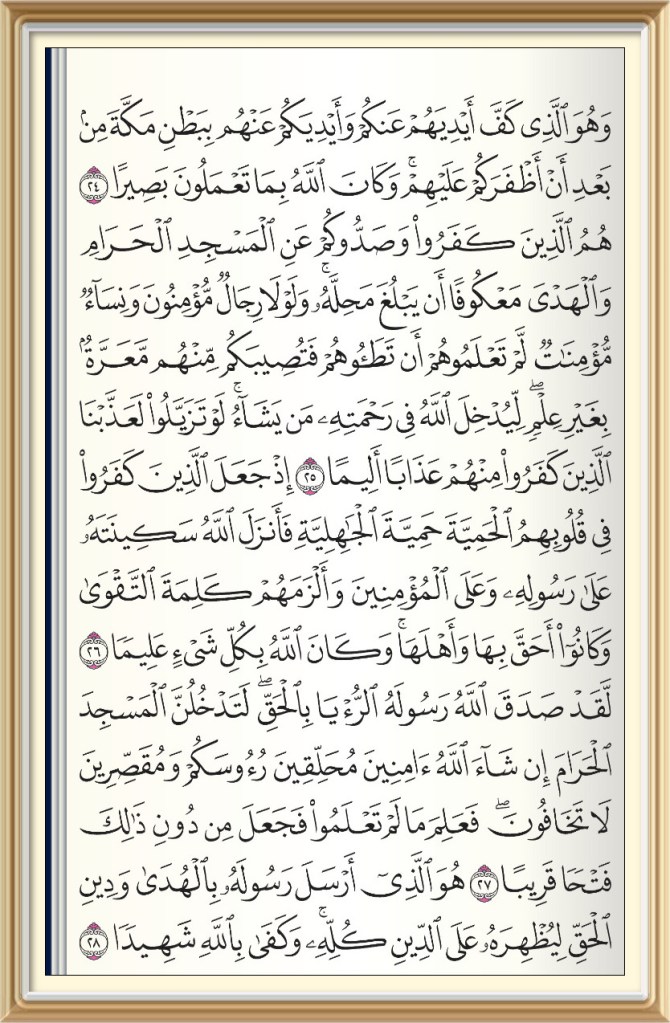 وَهُوَ ٱلَّذِى كَفَّ أَيْدِيَهُمْ عَنكُمْ وَأَيْدِيَكُمْ عَنْهُم بِبَطْنِ مَكَّةَ مِنۢ
بَعْدِ أَنْ أَظْفَرَكُمْ عَلَيْهِمْ ۚ وَكَانَ ٱللَّهُ بِمَا تَعْمَلُونَ بَصِيرًا ٢٤
هُمُ ٱلَّذِينَ كَفَرُوا۟ وَصَدُّوكُمْ عَنِ ٱلْمَسْجِدِ ٱلْحَرَامِ
وَٱلْهَدْىَ مَعْكُوفًا أَن يَبْلُغَ مَحِلَّهُۥ ۚ وَلَوْلَا رِجَالٌ مُّؤْمِنُونَ وَنِسَآءٌ
مُّؤْمِنَـٰتٌ لَّمْ تَعْلَمُوهُمْ أَن تَطَـُٔوهُمْ فَتُصِيبَكُم مِّنْهُم مَّعَرَّةٌۢ
بِغَيْرِ عِلْمٍ ۖ لِّيُدْخِلَ ٱللَّهُ فِى رَحْمَتِهِۦ مَن يَشَآءُ ۚ لَوْ تَزَيَّلُوا۟ لَعَذَّبْنَا
ٱلَّذِينَ كَفَرُوا۟ مِنْهُمْ عَذَابًا أَلِيمًا ٢٥ إِذْ جَعَلَ ٱلَّذِينَ كَفَرُوا۟
فِى قُلُوبِهِمُ ٱلْحَمِيَّةَ حَمِيَّةَ ٱلْجَـٰهِلِيَّةِ فَأَنزَلَ ٱللَّهُ سَكِينَتَهُۥ
عَلَىٰ رَسُولِهِۦ وَعَلَى ٱلْمُؤْمِنِينَ وَأَلْزَمَهُمْ كَلِمَةَ ٱلتَّقْوَىٰ
وَكَانُوٓا۟ أَحَقَّ بِهَا وَأَهْلَهَا ۚ وَكَانَ ٱللَّهُ بِكُلِّ شَىْءٍ عَلِيمًا ٢٦
لَّقَدْ صَدَقَ ٱللَّهُ رَسُولَهُ ٱلرُّءْيَا بِٱلْحَقِّ ۖ لَتَدْخُلُنَّ ٱلْمَسْجِدَ
ٱلْحَرَامَ إِن شَآءَ ٱللَّهُ ءَامِنِينَ مُحَلِّقِينَ رُءُوسَكُمْ وَمُقَصِّرِينَ
لَا تَخَافُونَ ۖ فَعَلِمَ مَا لَمْ تَعْلَمُوا۟ فَجَعَلَ مِن دُونِ ذَٰلِكَ
فَتْحًا قَرِيبًا ٢٧ هُوَ ٱلَّذِىٓ أَرْسَلَ رَسُولَهُۥ بِٱلْهُدَىٰ وَدِينِ
ٱلْحَقِّ لِيُظْهِرَهُۥ عَلَى ٱلدِّينِ كُلِّهِۦ ۚ وَكَفَىٰ بِٱللَّهِ شَهِيدًا ٢٨